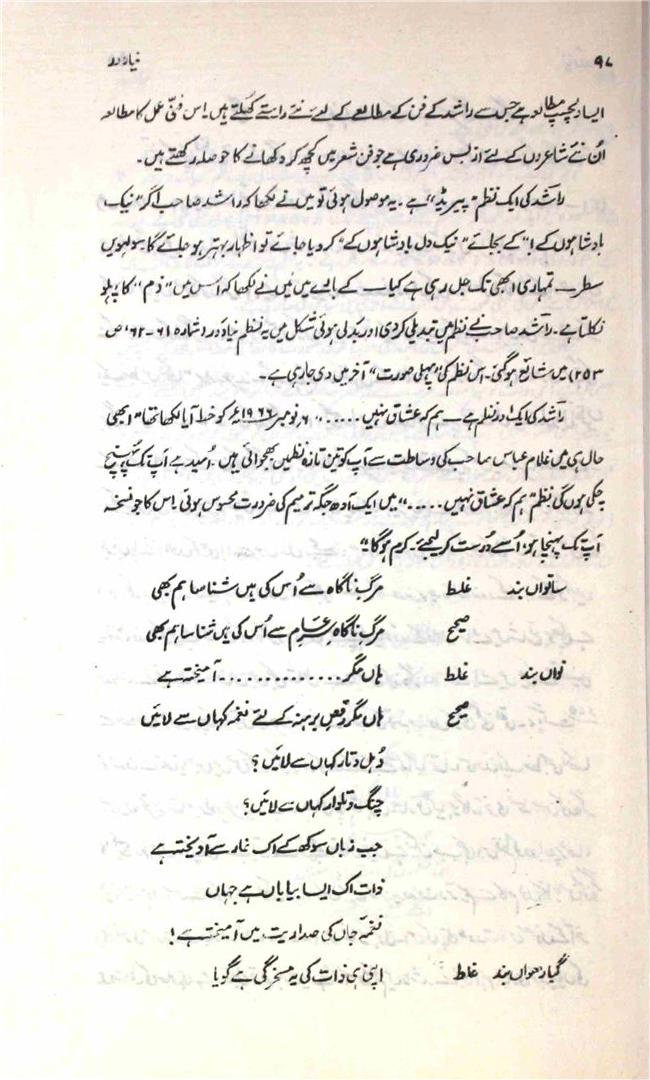 ۹۸ نیا دور
ایسا دلچسپ مطالعہ ہے جس سے راشد کے فن کے مطالعے کے لئے نئے راستے کھلتے ہیں۔ اس فنّی عمل کا مطالعہ
اُن نئے شاعروں کے لئے از بس ضروری ہے جو فن شعر میں کچھ کر دکھانے کا حوصلہ رکھتے ہیں۔
راشد کی ایک نظم "پیریڈ" ہے۔ یہ موصول ہوئی تو میں نے لکھا کہ راشد صاحب اگر "نیک
بادشاہوں کے ا" کے بجائے "نیک دل بادشاہوں کے" کر دیا جائے تو اظہار بہتر ہو جائے گا۔ سولھویں
سطر — تمہاری ابھی تک چل رہی ہے کیا — کے بارے میں میں نے لکھا کہ اس میں "ذم" کا پہلو
نکلتا ہے۔ راشد صاحب نے نظم میں تبدیلی کردی اور بدلی ہوئی شکل میں یہ نظم نیا دور (شمارہ ۶۱-۶۲، ص
۲۵۳) میں شائع ہوگئی۔ اس نظم کی "پہلی صورت" آخر میں دی جا رہی ہے۔
راشد کی ایک اور نظم ہے — ہم کہ عشاق نہیں ..... ، ۶ نومبر ۱۹۶۶ء کو خط آیا لکھا تھا "ابھی
حال ہی میں غلام عباس صاحب کی وساطت سے آپ کو تین تازہ نظمیں بھجوائی ہیں۔ اُمید ہے آپ تک پہنچ
چکی ہوں گی۔ نظم "ہم کہ عشاق نہیں ....." میں ایک آدھ جگہ ترمیم کی ضرورت محسوس ہوئی۔ اس کا جو نسخہ
آپ تک پہنچا ہو، اُسے درست کر لیجئے۔ کرم ہوگا"
ساتواں بند غلط مرگِ ناگاہ سے اُس کی ہیں شناسا ہم بھی
صحیح مرگِ ناگاہِ سرِ عام سے اُس کی ہیں شناسا ہم بھی
نواں بند غلط ہاں مگر .............. آمیختہ ہے
صحیح ہاں مگر رقصِ برہنہ کے لئے نغمہ کہاں سے لائیں
دُہل و تار کہاں سے لائیں؟
چنگ و تلوار کہاں سے لائیں؟
جب زباں سوکھ کے اک غار سے آویختہ ہے
ذات اک ایسا بیاباں ہے جہاں
نغمۂ جاں کی صدا ریت میں آمیختہ ہے!
گیارھواں بند غلط اپنی ہی ذات کی یہ مسخرگی ہے گویا